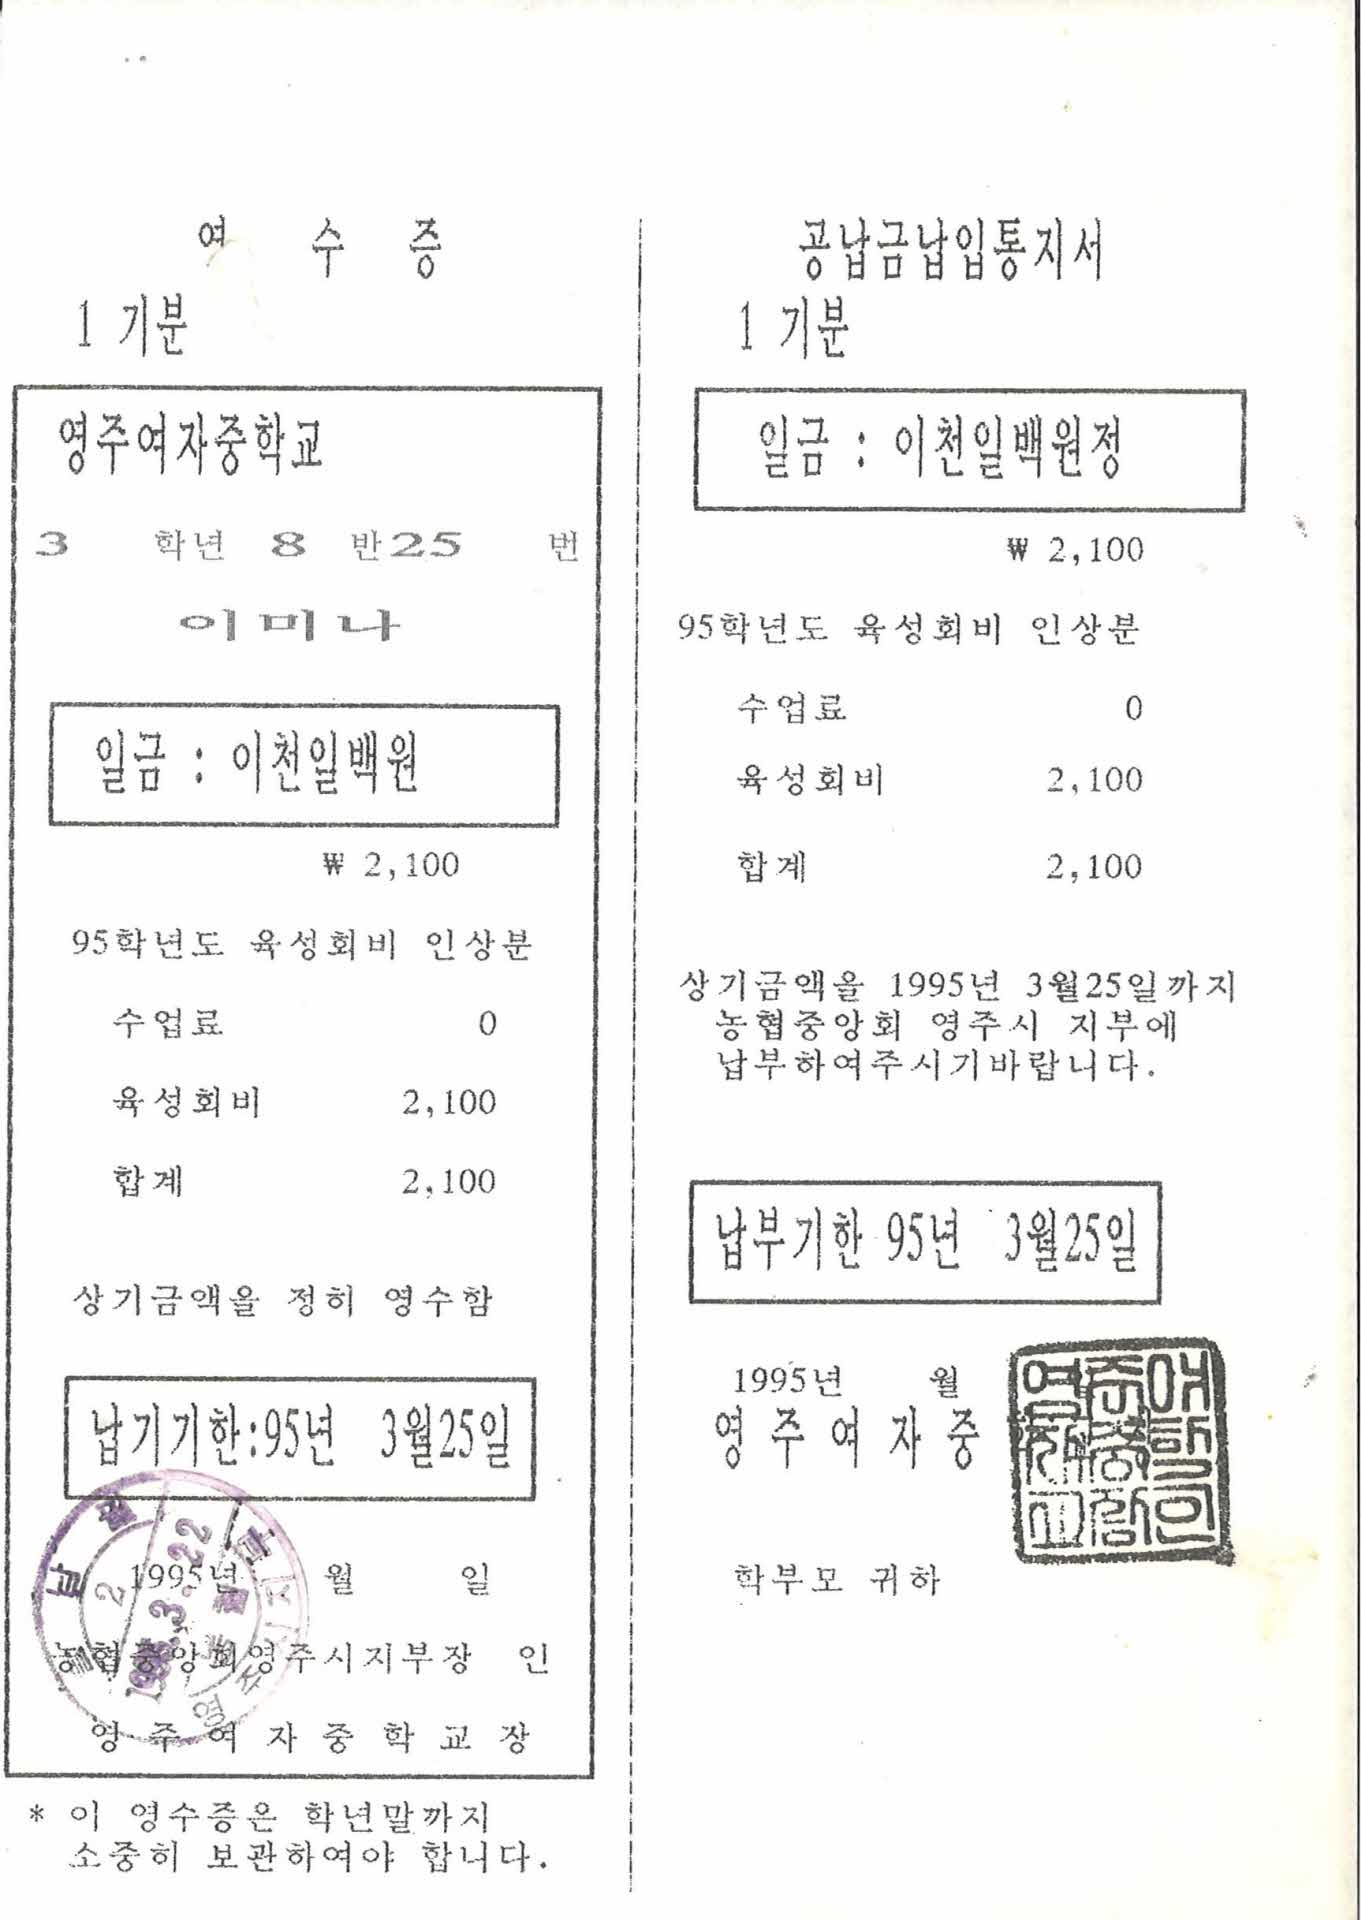 여 수 증
1 기분
영주여자중학교
3 학년 8 반 25 번
이미나
일금 : 이천일백원
₩ 2,100
95학년도 육성회비 인상분
수업료 0
육성회비 2,100
합계 2,100
상기금액을 정히 영수함
납기기한:95년 3월25일
1995년 월 일
농협중앙회영주시지부장 인
영주여자중학교장
* 이 영수증은 학년말까지
소중히 보관하여야 합니다.
공납금납입통지서
1 기분
일금 : 이천일백원정
₩ 2,100
95학년도 육성회비 인상분
수업료 0
육성회비 2,100
합계 2,100
상기금액을 1995년 3월25일까지
농협중앙회 영주시 지부에
납부하여주시기바랍니다.
납부기한 95년 3월25일
1995년 월
영 주 여 자 중
학부모 귀하